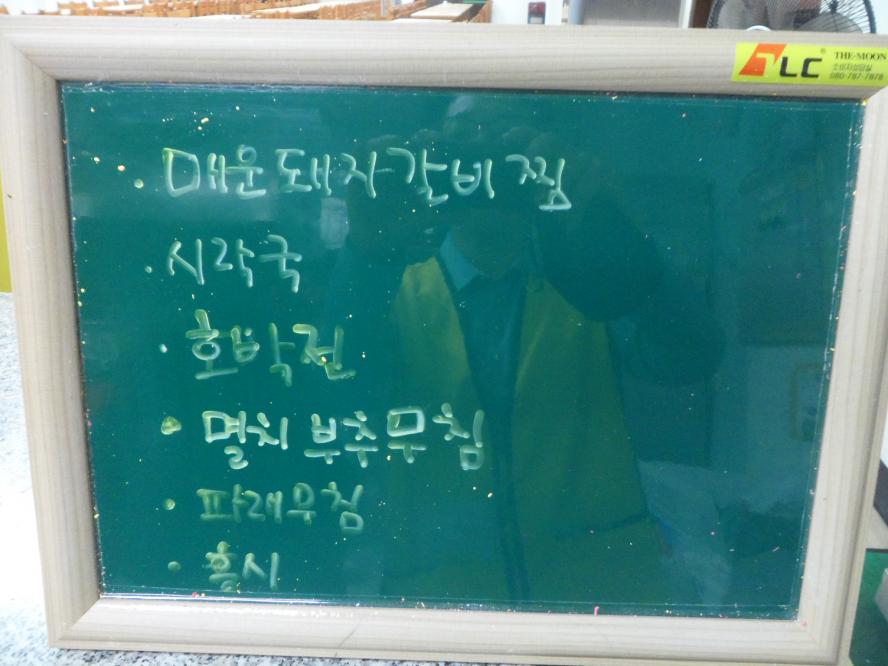 TLC THE-MOON
소비자상담실
080-787-7878
· 매운돼지갈비찜
· 시락국
· 호박전
· 멸치부추무침
· 파래무침
· 홍시